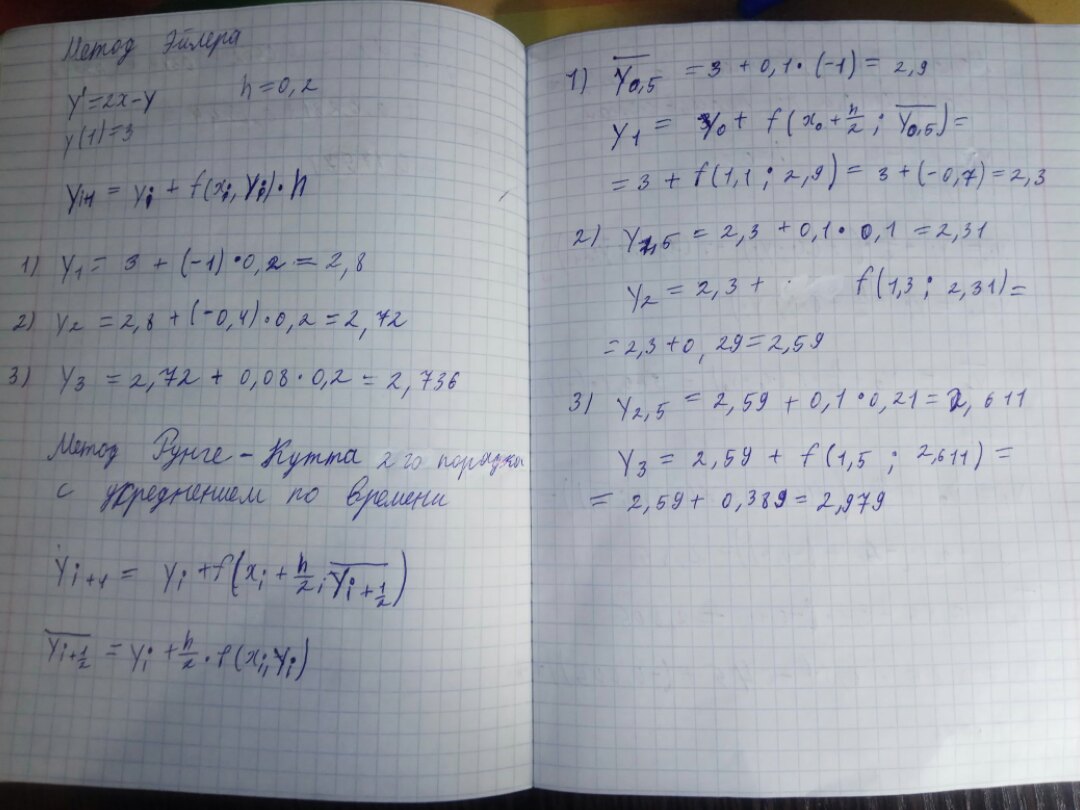 Метод Эйлера
y' = 2x - y h = 0,2
y(1) = 3
y_{i+1} = y_i + f(x_i, y_i) · h
1) y_1 = 3 + (-1) · 0,2 = 2,8
2) y_2 = 2,8 + (-0,4) · 0,2 = 2,72
3) y_3 = 2,72 + 0,08 · 0,2 = 2,736
Метод Рунге - Кутта 2 го порядка
с усреднением по времени
y_{i+1} = y_i + f(x_i + h/2; \overline{y_{i+1/2}})
\overline{y_{i+1/2}} = y_i + h/2 · f(x_i, y_i)
1) \overline{y_{0,5}} = 3 + 0,1 · (-1) = 2,9
y_1 = y_0 + f(x_0 + h/2 ; \overline{y_{0,5}}) =
= 3 + f(1,1 ; 2,9) = 3 + (-0,7) = 2,3
2) y_{1,5} = 2,3 + 0,1 · 0,1 = 2,31
y_2 = 2,3 + f(1,3 ; 2,31) =
= 2,3 + 0,29 = 2,59
3) y_{2,5} = 2,59 + 0,1 · 0,21 = 2,611
y_3 = 2,59 + f(1,5 ; 2,611) =
= 2,59 + 0,389 = 2,979